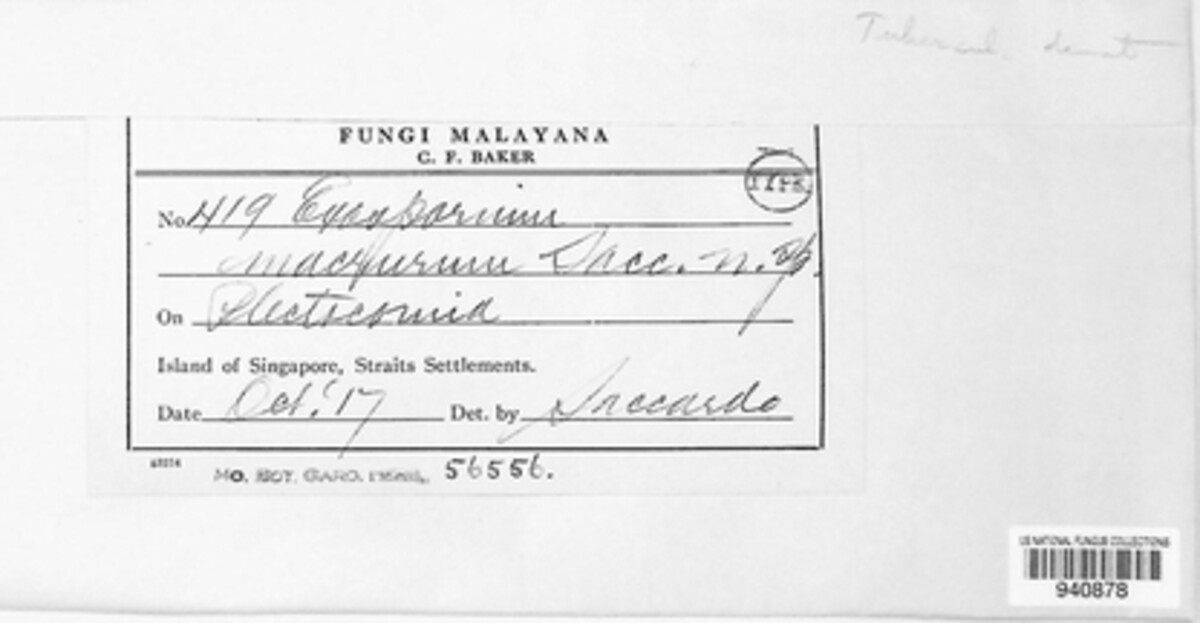 Tubercul. demat
FUNGI MALAYANA
C. F. BAKER
No. 419 Exosporium
Sacc. n. sp.
On Plectocomia
Island of Singapore, Straits Settlements.
Date Oct. '17 Det. by Saccardo
MO. BOT. GARD. 56556.
US NATIONAL FUNGUS COLLECTIONS
940878